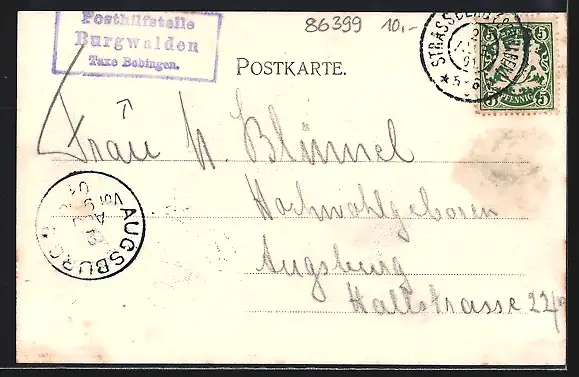 Posthilfsstelle
Burgwalden
Taxe Bobingen.
86399 10,-
STRASSBERG
5-6
BAYERN
5 5
PFENNIG
5 5
POSTKARTE.
Frau N. Blümel
Hochwohlgeboren
Augsburg
Hallstrasse 22/
AUGSBURG
Vor 9
AUG
01